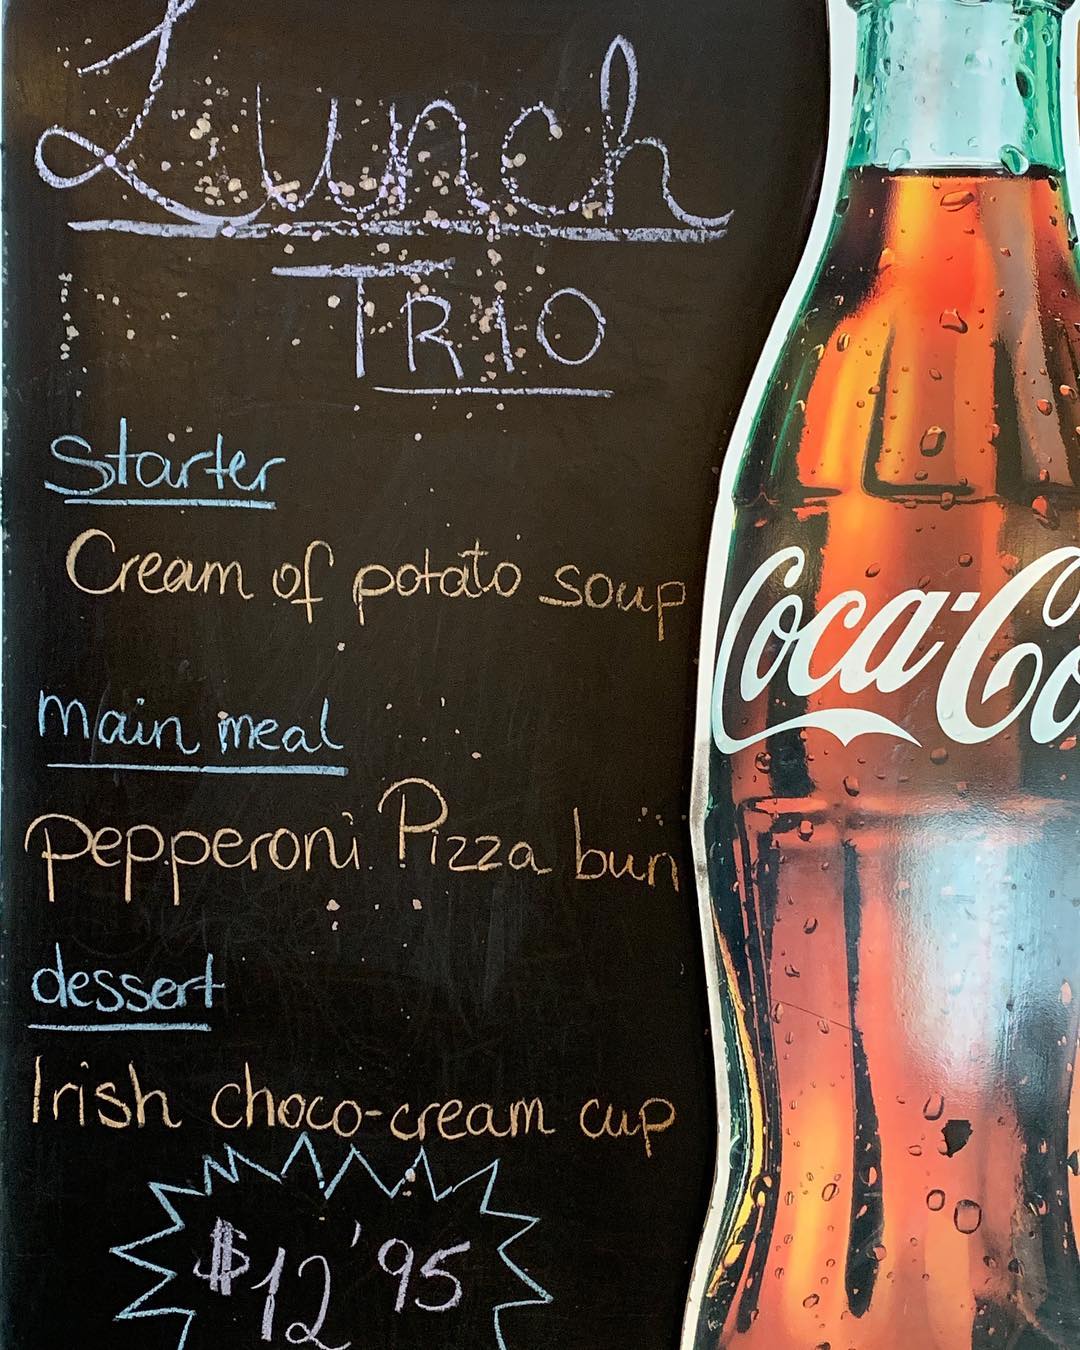 Lunch
TRIO
Starter
Cream of potato soup
main meal
pepperoni Pizza bun
dessert
Irish choco-cream cup
$12'95
Coca-Co